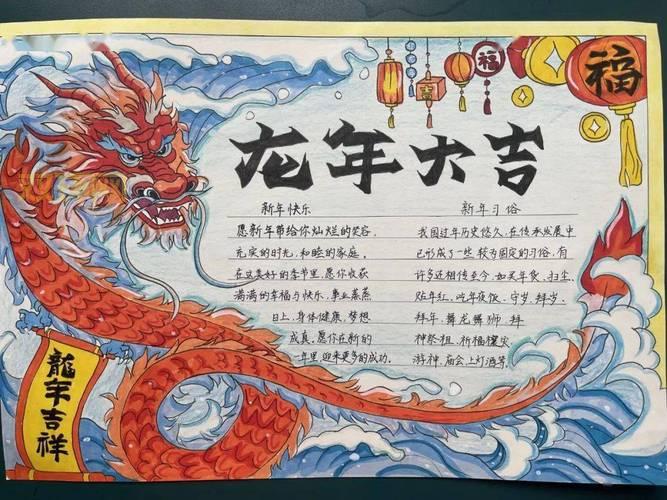 福
福
吉
龙年大吉
新年快乐
愿新年带给你灿烂的笑容、
充实的时光、和睦的家庭。
在这美好的季节里,愿你收获
满满的幸福与快乐、事业蒸蒸
日上、身体健康、梦想
成真。愿你在新的
一年里,迎来更多的成功。
新年习俗
我国过年历史悠久,在传承发展中
已形成了一些较为固定的习俗,有
许多还相传至今,如买年货、扫尘、
贴年红、吃年夜饭、守岁、拜岁、
拜年、舞龙舞狮、拜
神祭祖、祈福攘灾、
游神、庙会、上灯酒等。
龍年吉祥